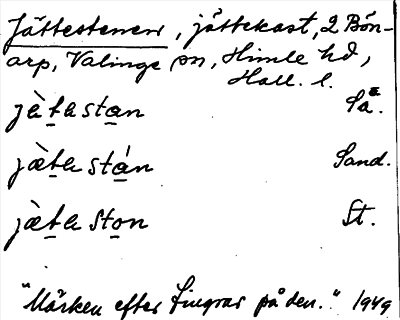 Jättestenen, jättekast, 2 Bön-
arp, Valinge sn, Himle hd,
Hall. l.
jæ̀ta stan Sä.
jæ̀ta stán Sand.
jæ̀ta ston St.
"Märken efter fingrar på den." 1949